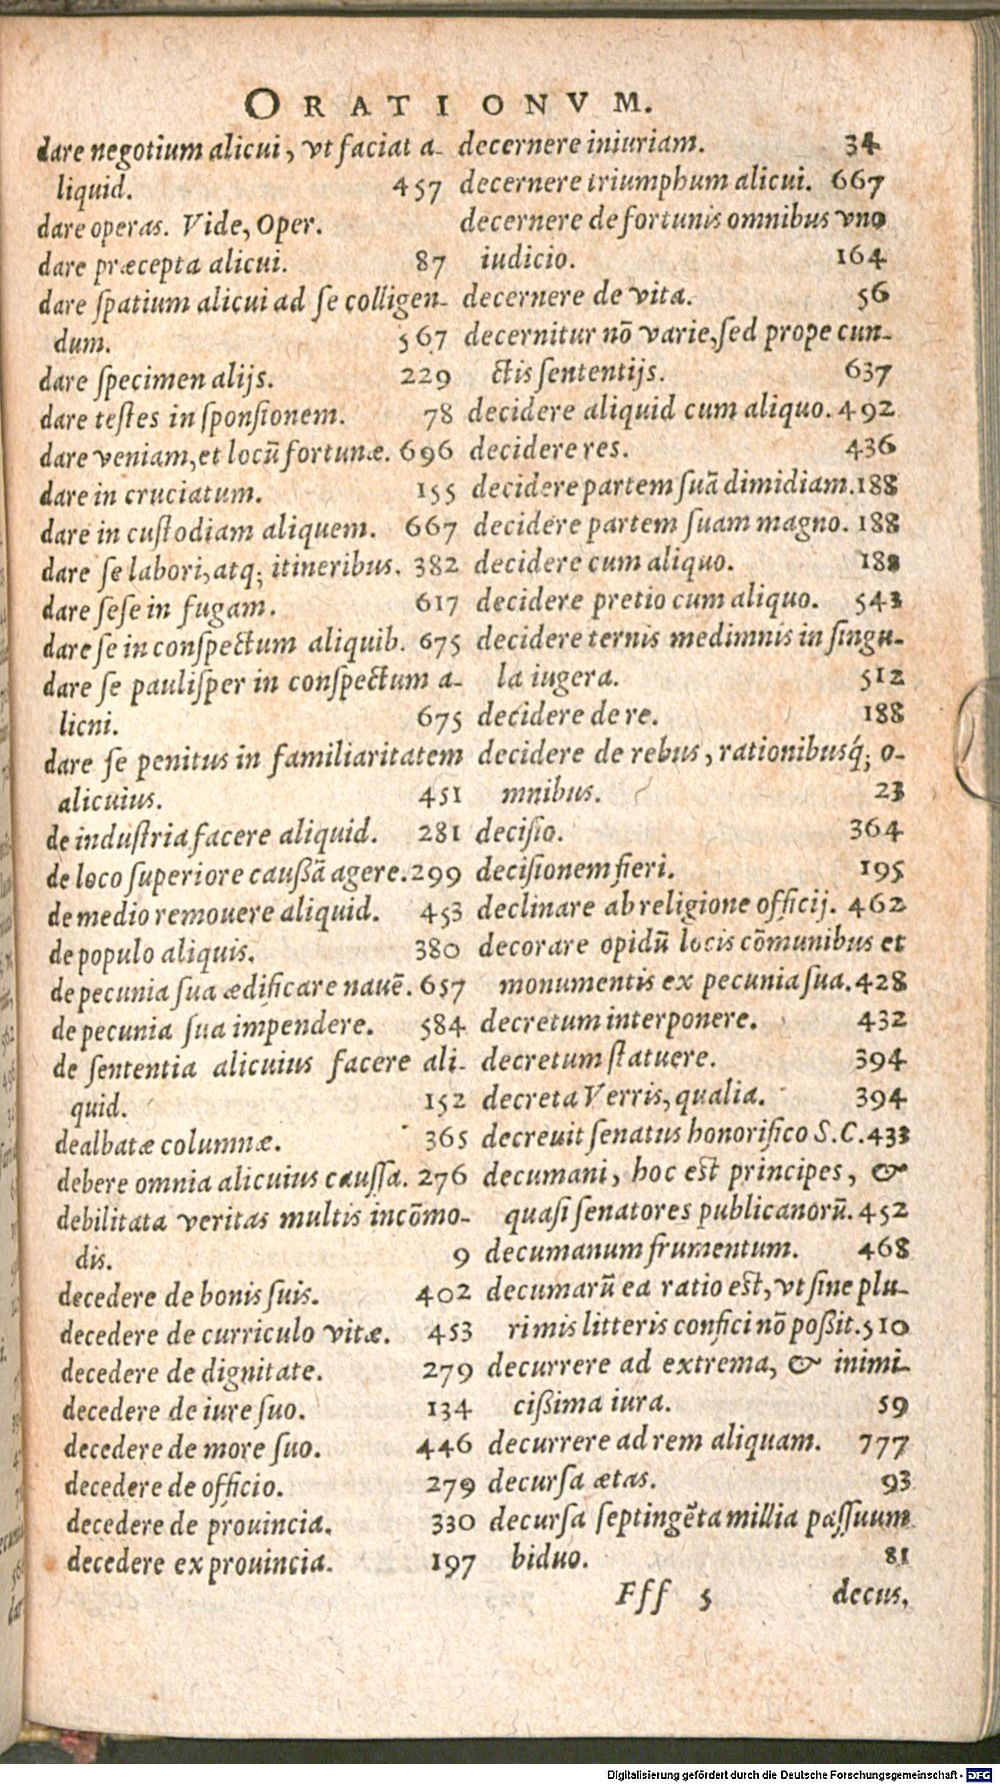 ORATIONVM.
dare negotium alicui, vt faciat a-
liquid. 457
dare operas. Vide, Oper.
dare præcepta alicui. 87
dare ſpatium alicui ad ſe colligen-
dum. 567
dare ſpecimen alijs. 229
dare teſtes in ſponſionem. 78
dare veniam, et locũ fortunæ. 696
dare in cruciatum. 155
dare in cuſtodiam aliquem. 667
dare ſe labori, atq; itineribus. 382
dare ſeſe in fugam. 617
dare ſe in conſpectum aliquib. 675
dare ſe pauliſper in conſpectum a-
licni. 675
dare ſe penitus in familiaritatem
alicuius. 451
de induſtria facere aliquid. 281
de loco ſuperiore cauſſã agere. 299
de medio remouere aliquid. 453
de populo aliquis. 380
de pecunia ſua ædificare nauẽ. 657
de pecunia ſua impendere. 584
de ſententia alicuius facere ali-
quid. 152
dealbatæ columnæ. 365
debere omnia alicuius cauſſa. 276
debilitata veritas multis incõmo-
dis. 9
decedere de bonis ſuis. 402
decedere de curriculo vitæ. 453
decedere de dignitate. 279
decedere de iure ſuo. 134
decedere de more ſuo. 446
decedere de officio. 279
decedere de prouincia. 330
decedere ex prouincia. 197
decernere iniuriam. 34
decernere triumphum alicui. 667
decernere de fortunis omnibus vno
iudicio. 164
decernere de vita. 56
decernitur nõ varie, ſed prope cun-
ctis ſententijs. 637
decidere aliquid cum aliquo. 492
decidere res. 436
decidere partem ſuã dimidiam. 188
decidere partem ſuam magno. 188
decidere cum aliquo. 188
decidere pretio cum aliquo. 543
decidere ternis medimnis in ſingu-
la iugera. 512
decidere de re. 188
decidere de rebus, rationibusq́; o-
mnibus. 23
deciſio. 364
deciſionem fieri. 195
declinare ab religione officij. 462
decorare opidũ locis cõmunibus et
monumentis ex pecunia ſua. 428
decretum interponere. 432
decretum ſtatuere. 394
decreta Verris, qualia. 394
decreuit ſenatus honorifico S.C. 433
decumani, hoc eſt principes, &
quaſi ſenatores publicanorũ. 452
decumanum frumentum. 468
decumarũ ea ratio eſt, vt ſine plu-
rimis litteris confici nõ poßit. 510
decurrere ad extrema, & inimi-
cißima iura. 59
decurrere ad rem aliquam. 777
decurſa ætas. 93
decurſa ſeptingẽta millia paſſuum
biduo. 81
Fff 5 decus,
Digitalisierung gefördert durch die Deutsche Forschungsgemeinschaft - DFG